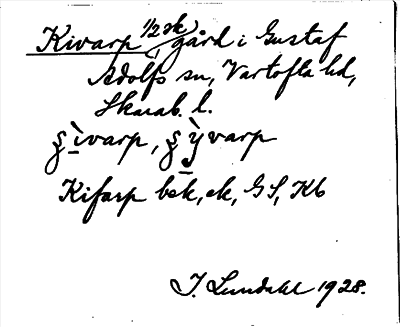 Kivarp 1/2 sk, gård i Gustaf
Adolfs sn, Vartofta hd,
Skarab. l.
ʂìvarp, ʂỳvarp
Kifarp bek, ek, GS, Kb
J. Lundahl 1928.